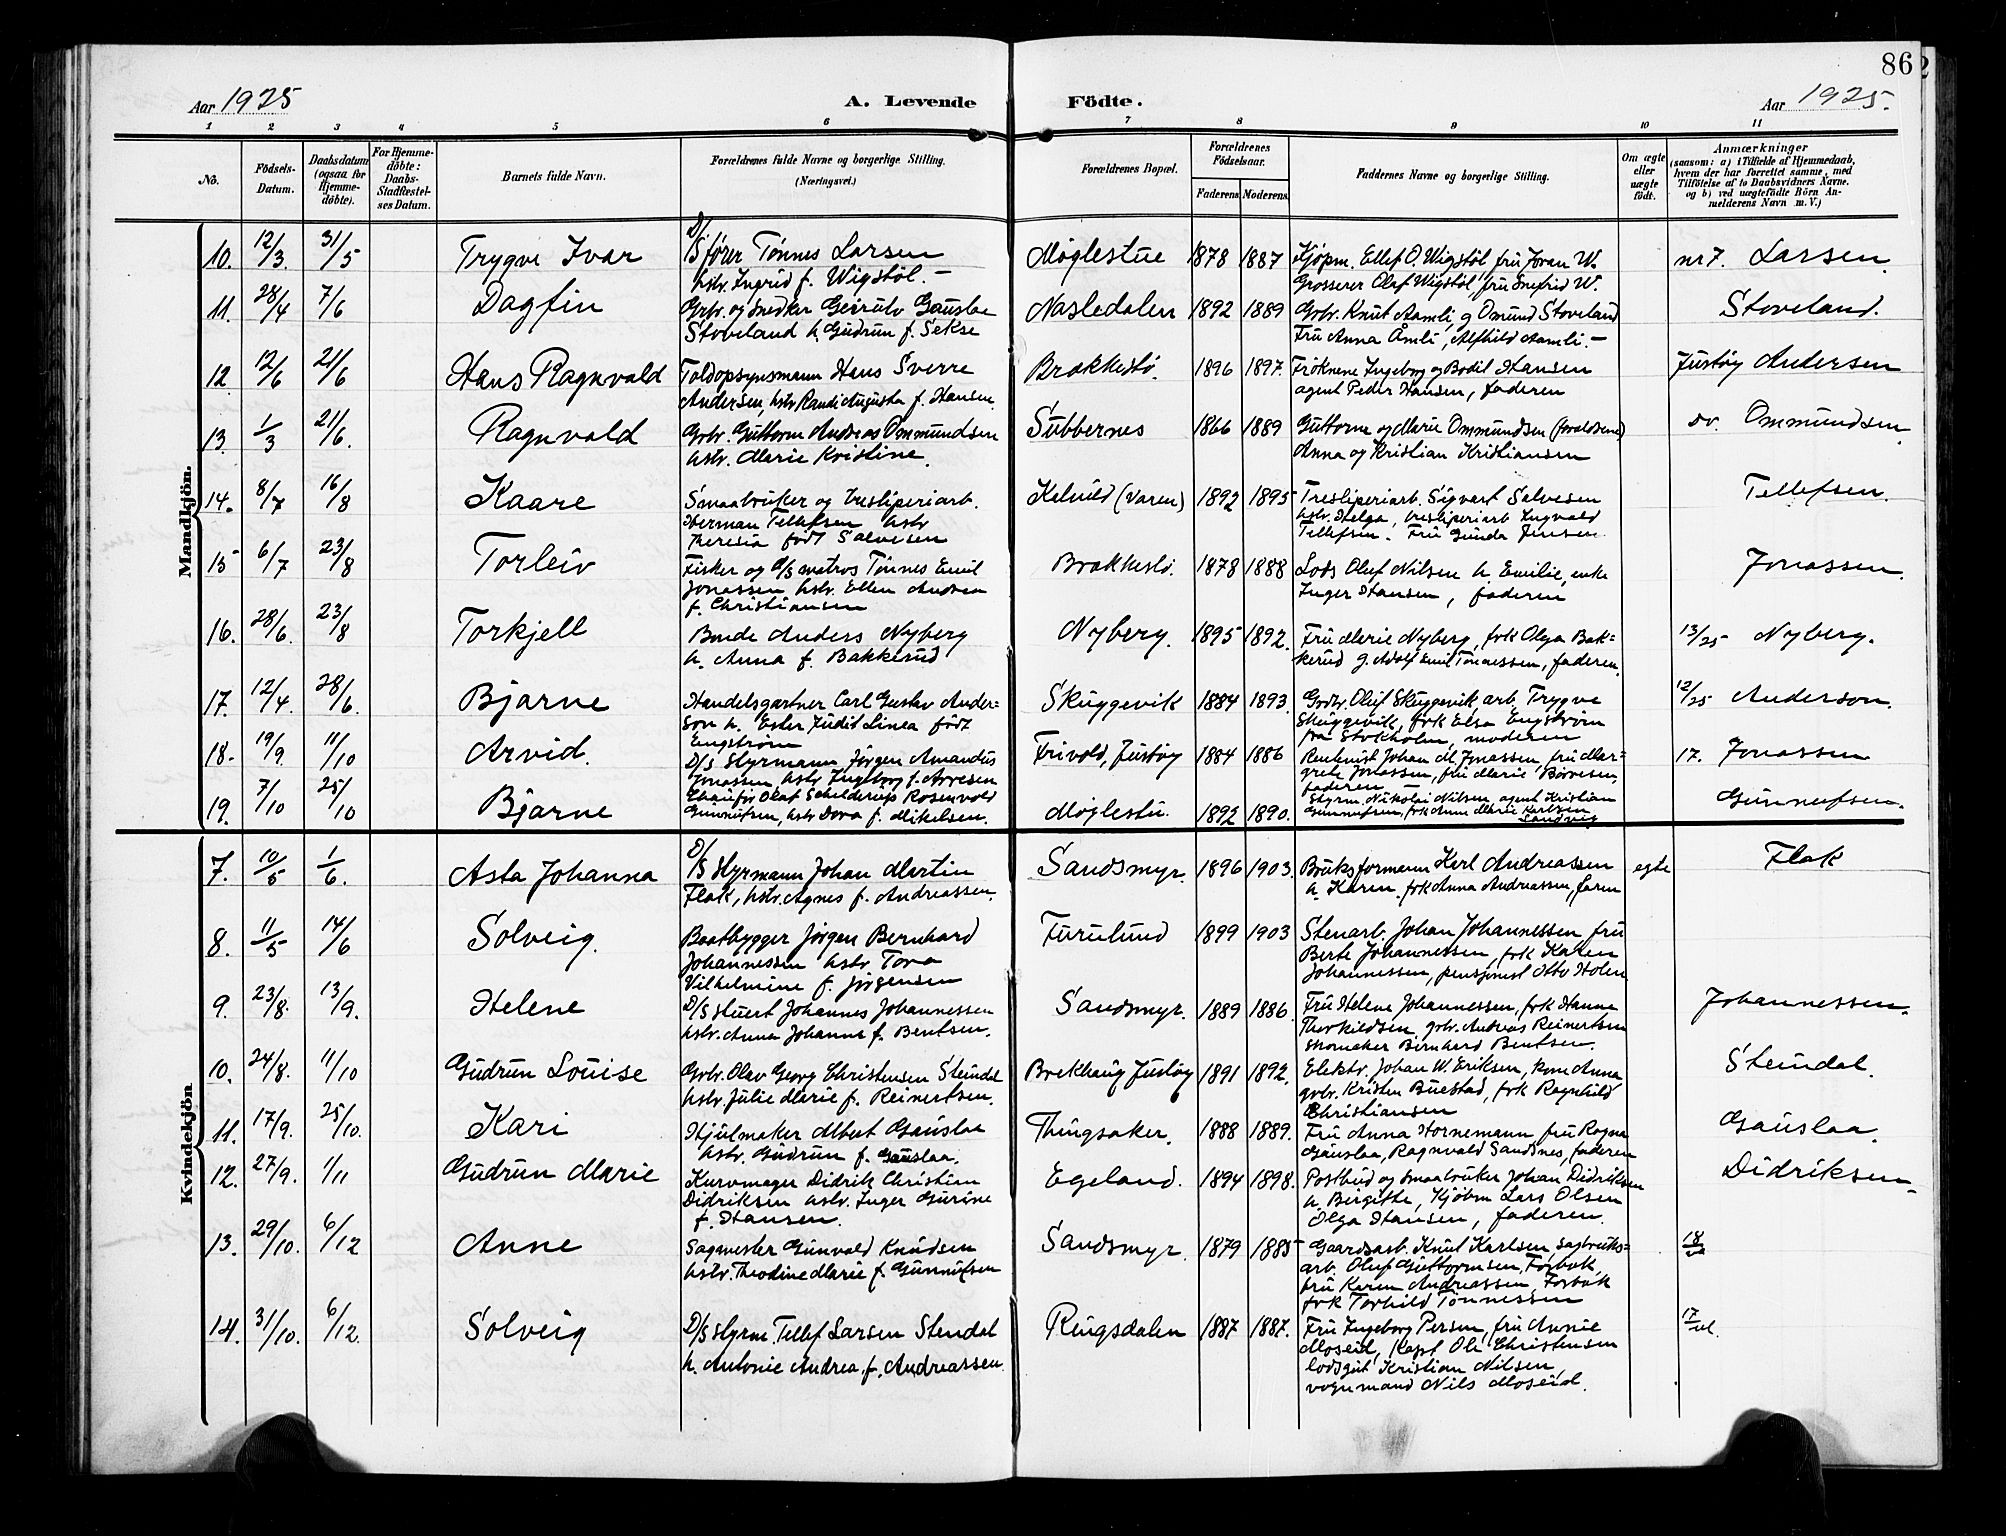 86
Aar 1925
A. Levende
Födte.
Aar 1925.
1 2 3 4 5 6 7 8 9 10 11
No.
Födsels-Datum.
Daabsdatum (ogsaa for Hjemmedöbte).
For Hjemmedöbte: Daabs-Stadfestelses Datum.
Barnets fulde Navn.
Forældrenes fulde Navne og borgerlige Stilling. (Næringsvei.)
Forældrenes Bopæl.
Forældrenes Födselsaar.
Faderens
Moderens
Faddernes Navne og borgerlige Stilling.
Om ægte eller uægte födt.
Anmærkninger
(saasom: a) i Tilfælde af Hjemmedaab, hvem der har forrettet samme, med Tilföielse af to Daabsvidners Navne. og b) ved uægtefödte Börn Anmelderens Navn m. V.)
Mandkjön.
10. 12/3. 31/5 Trygve Ivar
D/S fører Tønnes Larsen
hstr. Ingrid f. Wigstøl. –
Møglestue 1878 1887
Kjøpm. Ellef O. Wigstøl, fru Joran W.
Grosserer Olaf Wigstøl, fru Snefrid W.
nr 7. Larsen.
11. 28/4 7/6 Dagfin
Grbr. og snedker Geirulv Gauslaa
Stoveland h. Gudrun f. Sekse
Nasledalen 1892 1889
Grbr. Knut Aamli, g Omund Stoveland
Fru Anna Åmli, Alfhild Aamli. –
Stoveland.
12 12/6 21/6 Hans Ragnvald
Toldopsynsmann Hans Sverre
Andersen, hstr Randi Augusta f. Hansen.
Brækkestø. 1896 1897.
Frøknene Ingeborg og Bodil Hansen
agent Peder Hansen, faderen
Justøy Andersen
13. 1/3 21/6. Ragnvald
Grbr. Guttorm Andreas Ommundsen
hstr. Marie Kristine.
Subbernes 1866 1889
Guttorm og Marie Ommundsen (forældrene)
Anna og Kristian Kristiansen
dv. Ommundsen.
14. 8/7 16/8 Kaare
Smaabruker og tresliperiarb.
Herman Tellefsen hstr
Theresia født Salvesen
Kalvild (Varen) 1892 1895
Tresliperiarb. Sigvart Salvesen
hstr. Helga, tresliperiarb Ingvald
Tellefsen. Fru Gunda Jensen.
Tellefsen.
15 6/7 23/8 Torleiv
Fisker og D/S matros Tønnes Emil
Jonassen, hstr. Ellen Andrea
f. Christiansen
Brækkestø. 1878 1888
Lods Oluf Nilsen h. Emilie, enke
Inger Hansen, faderen
Jonassen.
16. 28/6. 23/8 Torkjell
Bonde Anders Nyberg
h. Anna f. Bakkerud
Nyberg. 1895 1892.
Fru Marie Nyberg, frk Olga Bak=
kerud g. Adolf Emil Tønnessen, faderen.
13/25 Nyberg.
17. 12/4. 28/6. Bjarne
Handelsgartner Carl Gustav Ander-
son h. Ester Judit Linea født
Engström
Skuggevik 1884 1893.
Grbr. Oluf Skuggevik, arb. Trygve
Skuggevik, frk Elsa Engström
fra Stokholm, moderen
12/25 Anderson.
18. 19/9. 11/10 Arvid.
D/S Styrmann Jørgen Amandus
Jonassen, hstr Ingeborg f. Arvesen
Frivold, Justøy 1884 1886
Rentenist Johan M. Jonassen, fru Mar-
grete Jonassen, fru Marie Børvesen,
faderen –
17. Jonassen
19. 7/10 25/10 Bjarne
Chauffør Olaf Schelderup Rosenvold
Gunnufsen, hstr Dora f. Mikelsen.
Møglestu. 1892 1890.
Styrm. Nikolai Nilsen, agent Kristian
Gunnufsen, frk Anne Marie Karlsen
Sandvig
Gunnufsen.
Kvindekjön
7. 10/5 1/6. Asta Johanna
D/S Styrmann Johan Martin
Flak, hstr. Agnes f. Andreassen.
Sandsmyr. 1896 1903.
Bruksformann Karl Andreassen
h. Karen, frk Anna Andreassen, faren
egte
Flak
8. 11/5 14/6 Solveig.
Baatbygger Jørgen Bernhard
Johannessen hstr Tora
Vilhelmine f. Jørgensen
Furulund 1899 1903
Stenarb. Johan Johannessen fru
Berte Johannessen, frk Karen
Johannessen, pensjonist Otto Holen
9. 23/8. 13/9. Helene
D/S stuert Johannes Johannessen
hstr. Anna Johanne f. Bentsen.
Sandsmyr. 1889 1886.
Fru Helene Johannessen, frk Hanna
Thorkildsen, grbr. Andreas Reinertsen
skomaker Birnhard Bentsen.
Johannessen.
10. 24/8. 11/10 Gudrun Louise
Grbr. Olav Georg Christensen Steindal
hstr. Julie Marie f. Reinertsen.
Brekhaug Justøy 1891 1892.
Elektr. Johan W. Eriksen, kone Anna
grbr. Kristen Buestad, frk Ragnhild
Christiansen
Steindal.
11. 17/9. 25/10. Kari
Hjulmaker Albert Gauslaa
hstr. Gudrun f. Gauslaa.
Thingsaker. 1888 1889.
Fru Anna Hornemann, fru Ragna
Gauslaa, Ragnvald Sandnes, faderen
Gauslaa.
12. 27/9. 1/11 Gudrun Marie
Kurvmager Didrik Christian
Didriksen hstr. Inger Gurine
f. Hansen.
Egeland. 1894 1898.
Postbud og Smaabruker Johan Didriksen
h. Birgitte, Kjøbm Lars Olsen
Olga Hansen, faderen.
Didriksen.
13. 29/10. 6/12 Anne
Sagmester Gunvald Knudsen
hstr. Theodine Marie f. Gunnufsen
Sandsmyr. 1879 1885
Gaardsarb. Knut Karlsen, sagbruks=
arb. Oluf Guttormsen, Fosbæk,
fru Karen Andreassen, Fosbæk
frk Torhild Tønnessen
18
14. 31/10. 6/12. Solveig
D/S Styrm. Tellef Larsen Stendal
h. Antonie Andrea f. Andreassen.
Ringsdalen 1887 1887.
Fru Ingeborg Persen, fru Annie
Moseid, kapt. Ole Christensen
lodsgut Kristian Nilsen,
vognmand Nils Moseid.
17